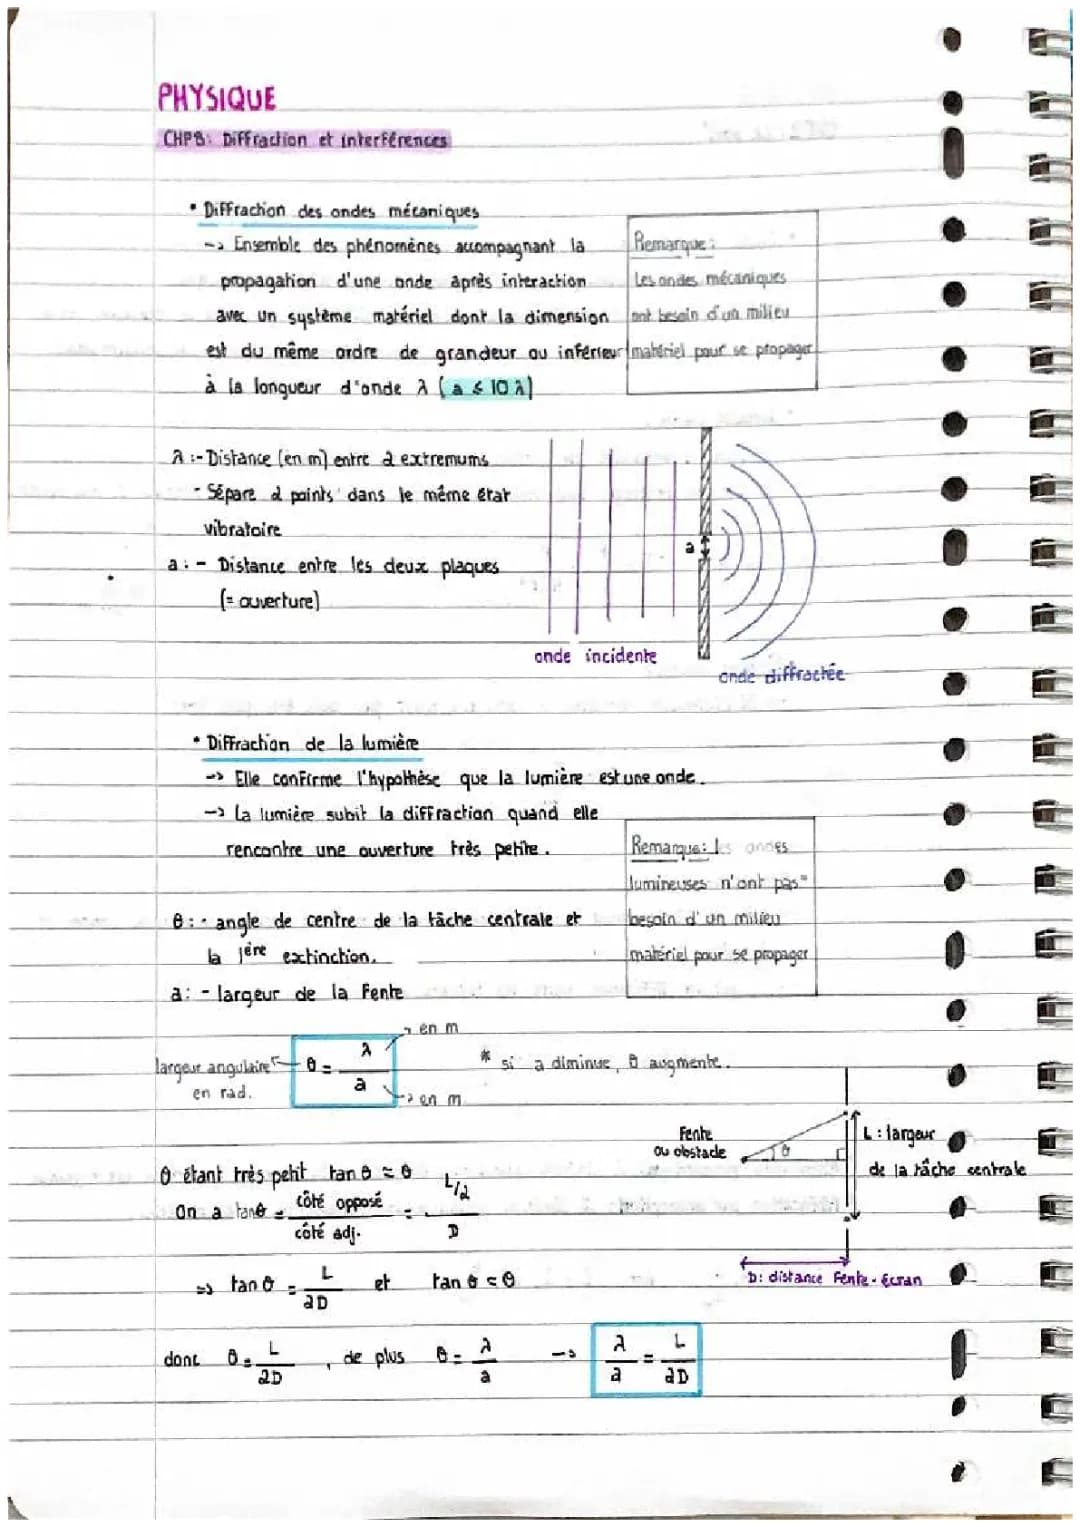 PHYSIQUE
CHP8: Diffraction et interférences
• Diffraction des ondes mécaniques
-> Ensemble des phénomènes accompagnant la
propagation d'une onde après interaction
avec un système matériel dont la dimension
est du même ordre de grandeur ou inférieur
à la longueur d'onde λ (a ≤ 10 λ)
Remarque:
Les ondes mécaniques
ont besoin d'un milieu
matériel pour se propager
λ :- Distance (en m) entre 2 extremums
- Sépare 2 points dans le même état
vibratoire
a : - Distance entre les deux plaques
(= ouverture)
a
onde incidente
onde diffractée
• Diffraction de la lumière
-> Elle confirme l'hypothèse que la lumière est une onde.
-> La lumière subit la diffraction quand elle
rencontre une ouverture très petite.
Remarque: les ondes
lumineuses n'ont pas
besoin d'un milieu
matériel pour se propager
θ : - angle de centre de la tâche centrale et
la 1ère extinction.
a: - largeur de la fente
largeur angulaire en rad. θ = λ/a en m en m
* si a diminue, θ augmente.
Fente
ou obstacle
θ
L : largeur
de la tâche centrale
D: distance Fente-écran
θ étant très petit tan θ ≈ θ
On a tanθ = côté opposé / côté adj. = L/2 / D
=> tan θ = L/2D et tan θ ≈ θ
donc θ = L/2D , de plus θ = λ/a -> λ/a = L/2D